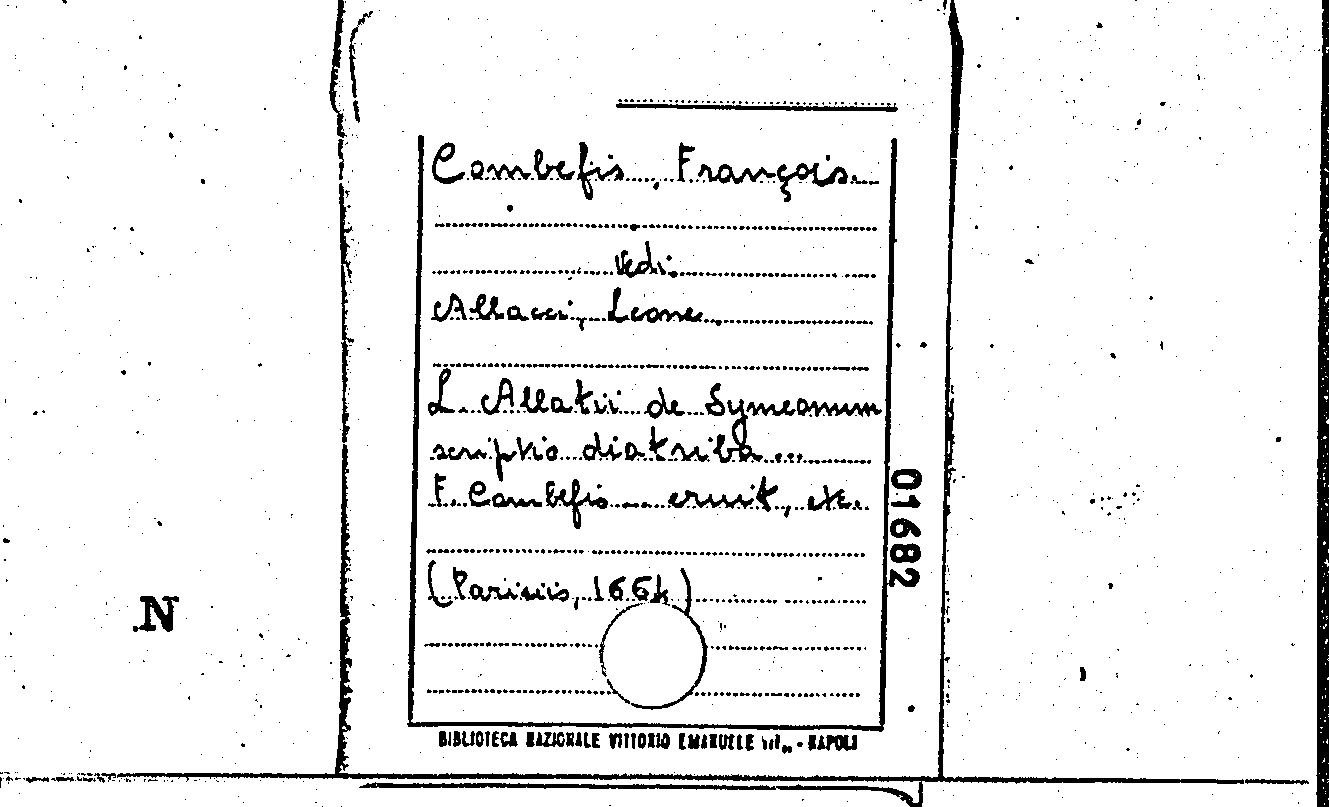 Combefis, François.
Vedi:
Allacci, Leone.
L. Allatii de Symeonum
scriptis diatriba...
F. Combefis... eruit, etc.
(Parisiis, 1664)
01682
N
BIBLIOTECA NAZIONALE VITTORIO EMANUELE III - NAPOLI